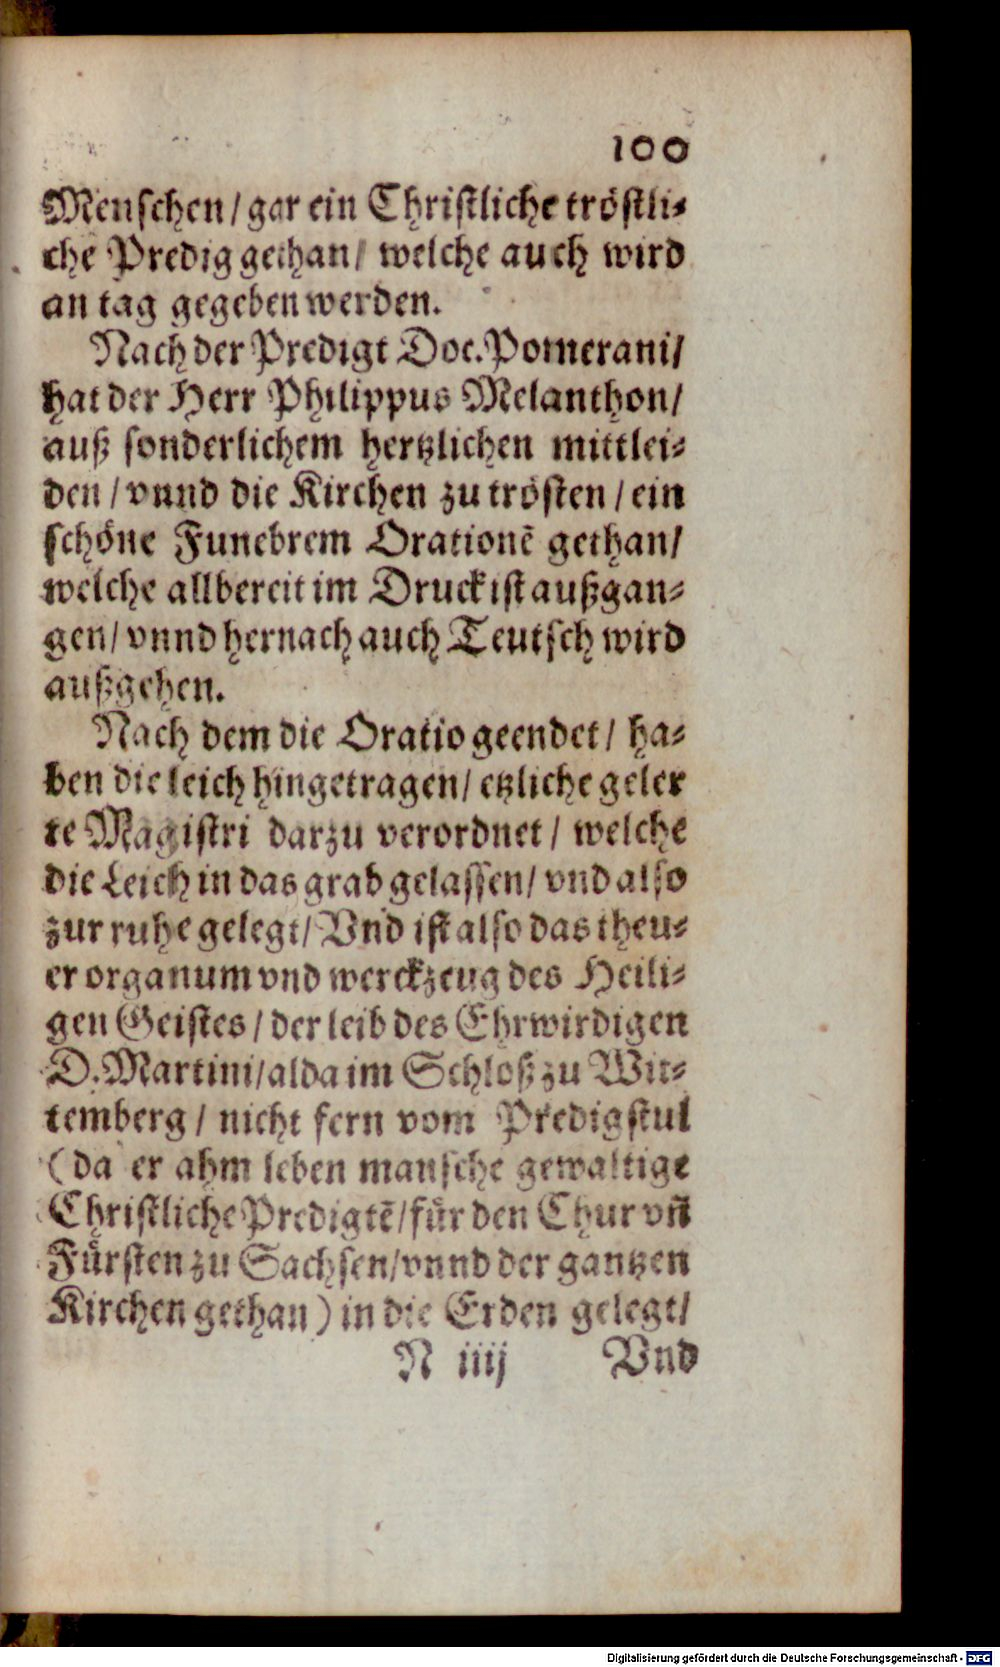 100
Menschen / gar ein Christliche tröstli-
che Predig gethan / welche auch wird
an tag gegeben werden.
Nach der Predigt Doc. Pomerani /
hat der Herr Philippus Melanthon /
auß sonderlichem hertzlichen mittlei-
den / vnnd die Kirchen zu trösten / ein
schöne Funebrem Orationē gethan /
welche allbereit im Druck ist außgan-
gen / vnnd hernach auch Teutsch wird
außgehen.
Nach dem die Oratio geendet / ha-
ben die leich hingetragen / etzliche geler
te Magistri darzu verordnet / welche
die Leich in das grab gelassen / vnd also
zur ruhe gelegt / Vnd ist also das theu-
er organum vnd werckzeug des Heili-
gen Geistes / der leib des Ehrwirdigen
D. Martini / alda im Schloß zu Wit-
temberg / nicht fern vom Predigstul
(da er ahm leben mansche gewaltige
Christliche Predigtē / für den Chur vn̄
Fürsten zu Sachsen / vnnd der gantzen
Kirchen gethan) in die Erden gelegt /
N iiij Vnd
Digitalisierung gefördert durch die Deutsche Forschungsgemeinschaft - DFG